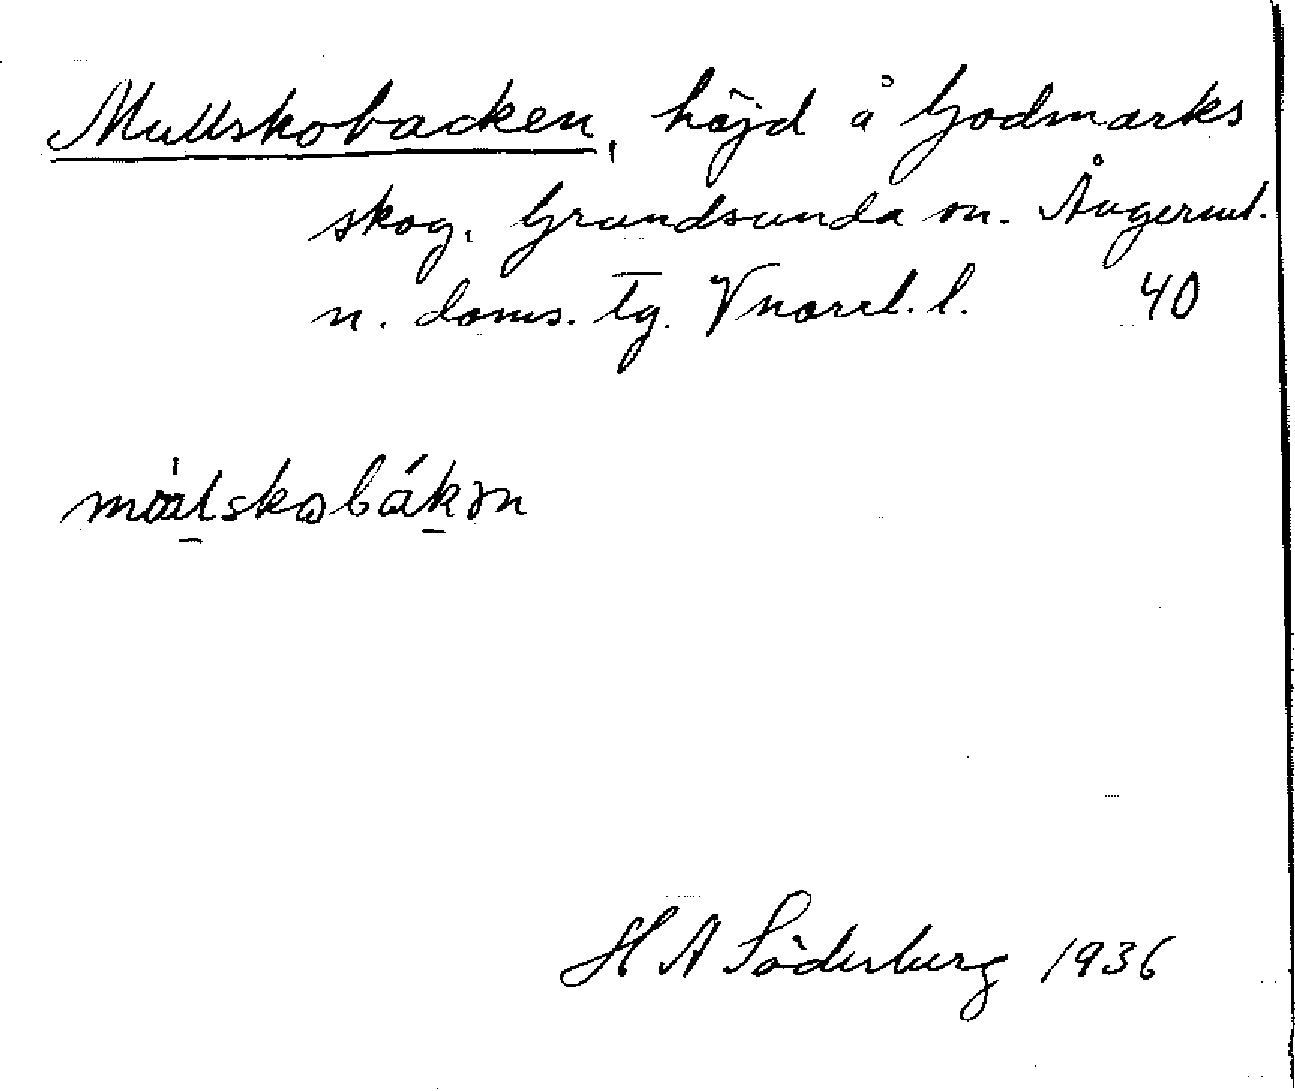 Mullskobacken, höjd å Godmarks
skog, Grundsunda sn. Ångerml.
n. doms. tg. Vnorrl. l. 40
H A Söderberg 1936